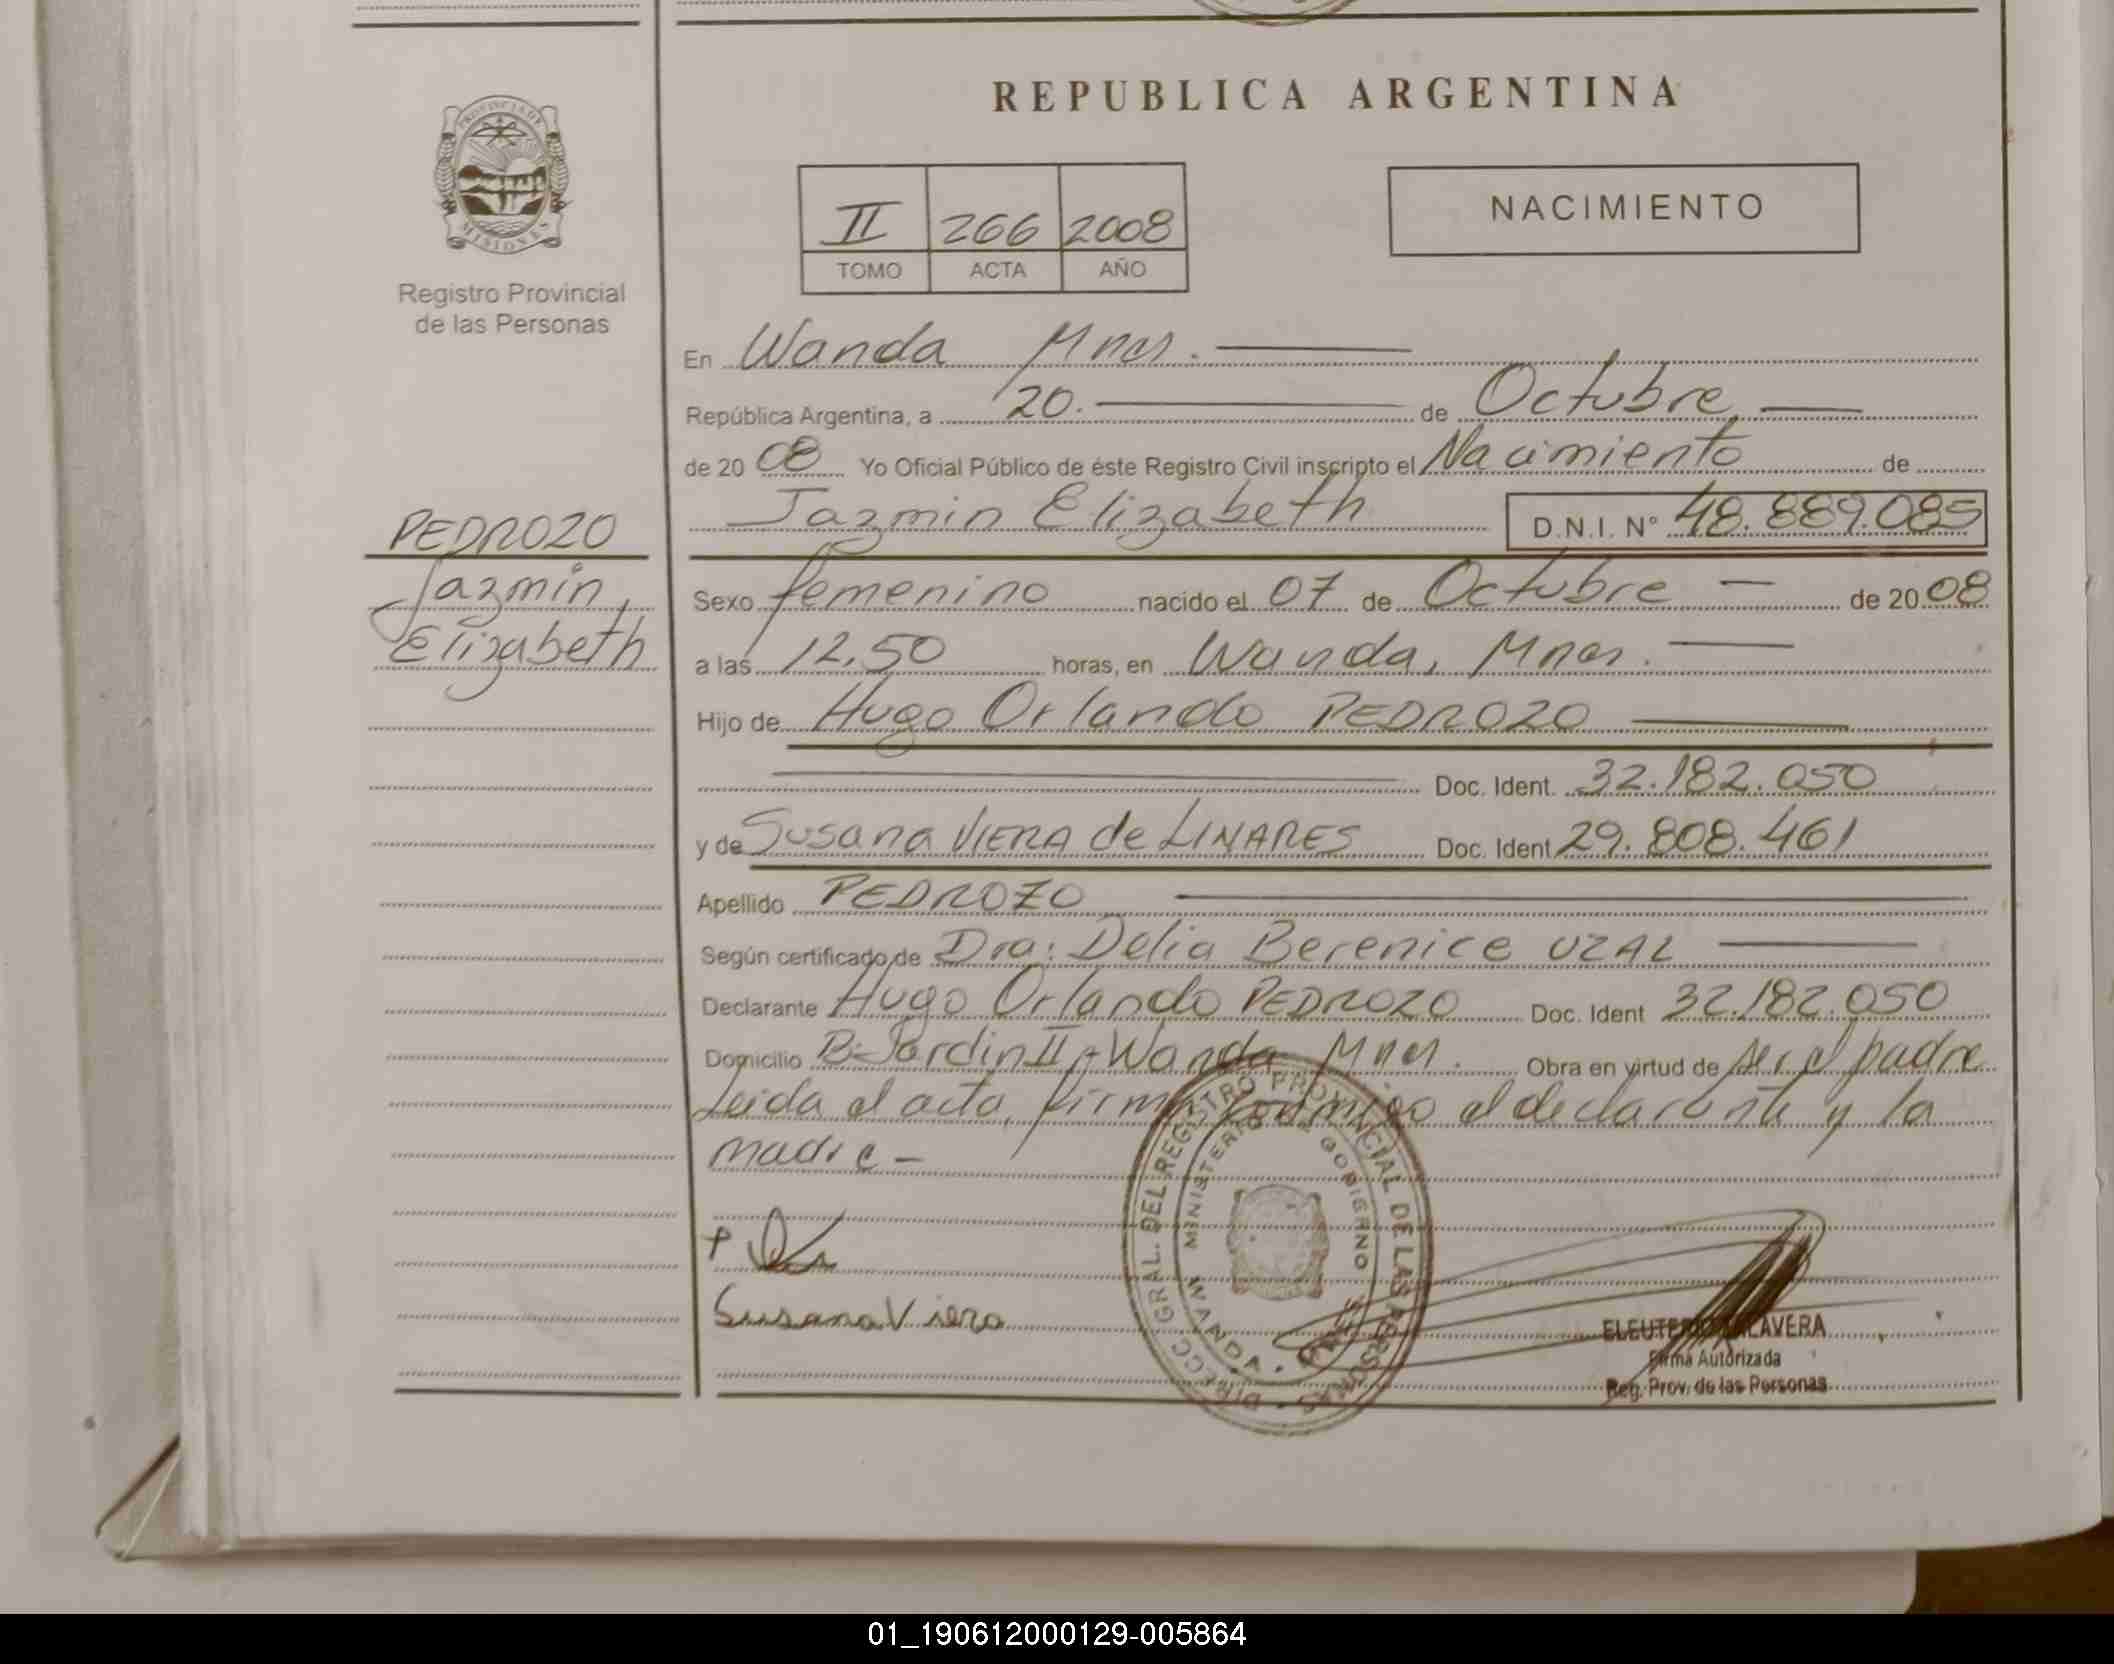 REPUBLICA ARGENTINA
PROVINCIA DE
MISIONES
Registro Provincial
de las Personas
II 266 2008
TOMO ACTA AÑO
NACIMIENTO
En Wanda Mnes.
República Argentina, a 20. de Octubre
de 20 08 Yo Oficial Público de éste Registro Civil inscripto el Nacimiento de
Jazmin Elizabeth D.N.I. N° 48.889.085
PEDROZO
Jazmin
Elizabeth
Sexo femenino nacido el 07 de Octubre de 20 08
a las 12,50 horas, en Wanda, Mnes.
Hijo de Hugo Orlando PEDROZO
Doc. Ident. 32.182.050
y de Susana VIERA de LINARES Doc. Ident 29.808.461
Apellido PEDROZO
Según certificado de Dra: Delia Berenice UZAL
Declarante Hugo Orlando PEDROZO Doc. Ident 32.182.050
Domicilio B: Jardin II - Wanda Mnes. Obra en virtud de ser el padre
Leida el acta, firma conmigo el declarante y la
madre -
Susana Viera
DIRECC. GRAL. DEL REGISTRO PROVINCIAL DE LAS PERSONAS
MINISTERIO DE GOBIERNO
WANDA
ELEUTERIO TALAVERA
Firma Autorizada
Reg. Prov. de las Personas
01_190612000129-005864